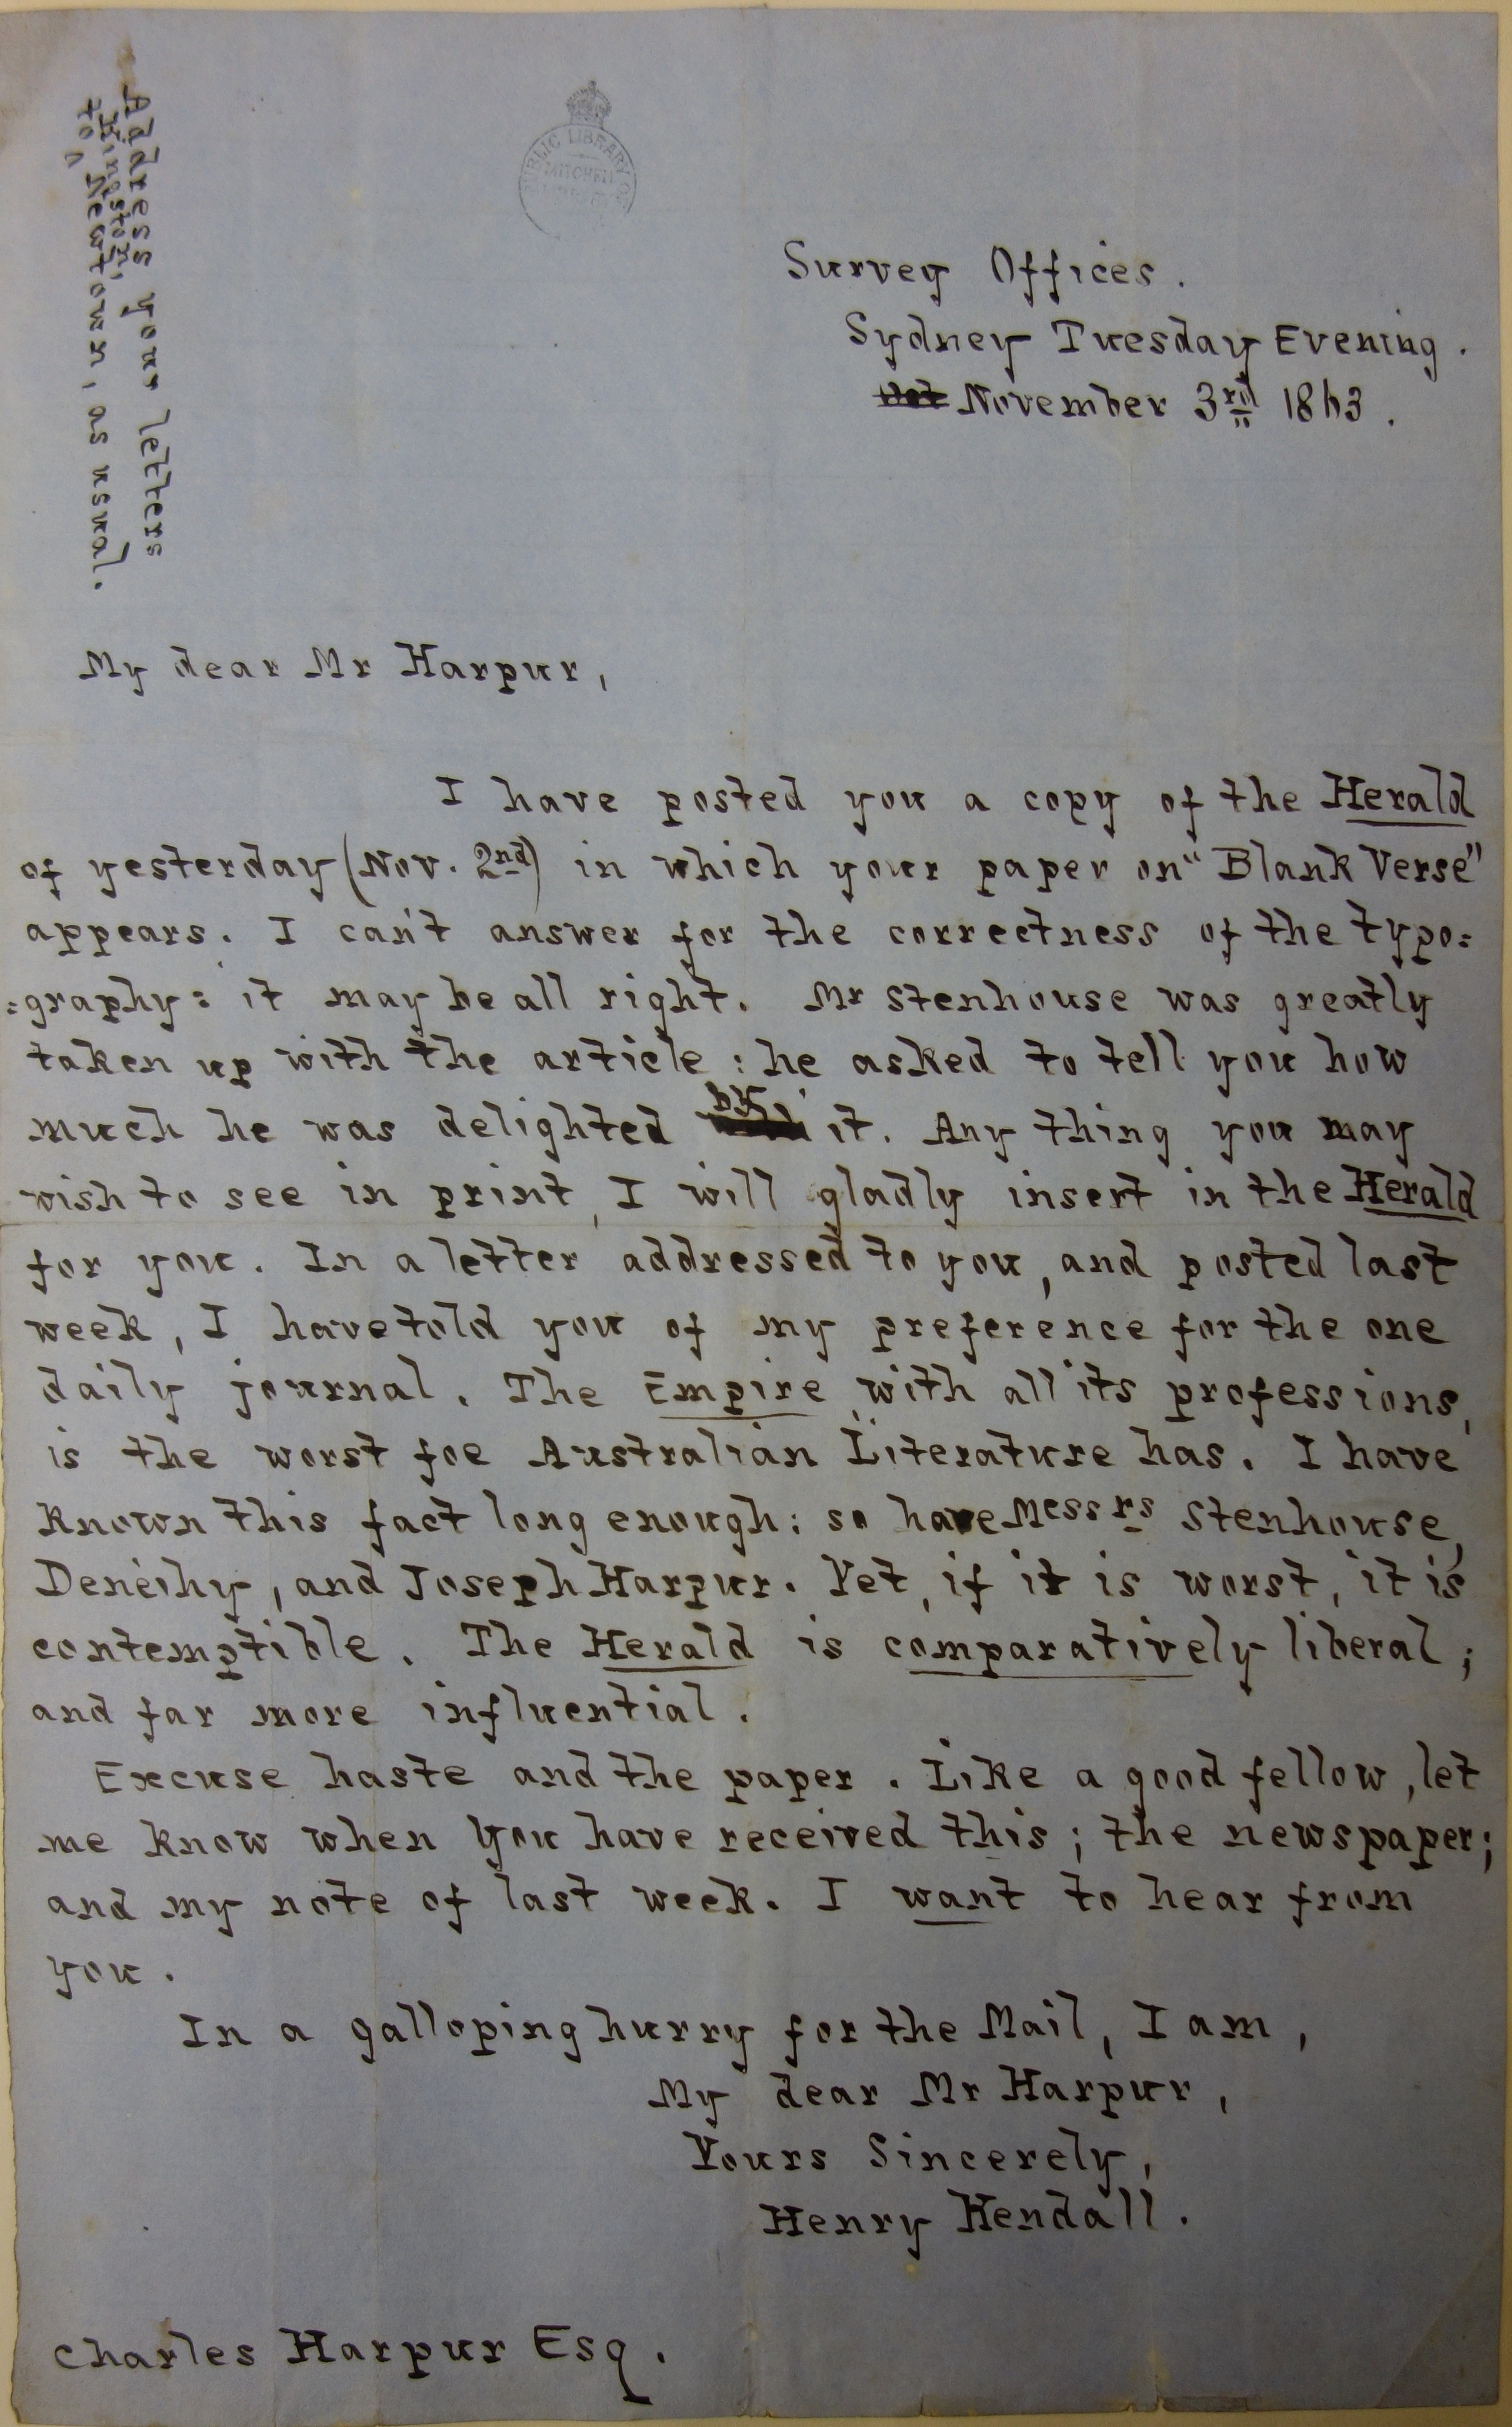 Address your letters
to Kingston,
Newtown, as usual.
PUBLIC LIBRARY OF
MITCHELL
Survey Offices.
Sydney Tuesday Evening.
Oct November 3rd 1863.
My dear Mr Harpur,
I have posted you a copy of the Herald
of yesterday (Nov. 2nd) in which your paper on "Blank Verse"
appears. I can't answer for the correctness of the typo=
=graphy: it may be all right. Mr Stenhouse was greatly
taken up with the article: he asked to tell you how
much he was delighted by it. Any thing you may
wish to see in print, I will gladly insert in the Herald
for you. In a letter addressed to you, and posted last
week, I have told you of my preference for the one
daily journal. The Empire, with all its professions,
is the worst foe Australian Literature has. I have
known this fact long enough: so have Messrs Stenhouse,
Deneihy, and Joseph Harpur. Yet, if it is worst, it is
contemptible. The Herald is comparatively liberal;
and far more influential.
Excuse haste and the paper. Like a good fellow, let
me know when you have received this; the newspaper;
and my note of last week. I want to hear from
you.
In a galloping hurry for the Mail, I am,
My dear Mr Harpur,
Yours Sincerely,
Henry Kendall.
Charles Harpur Esq.